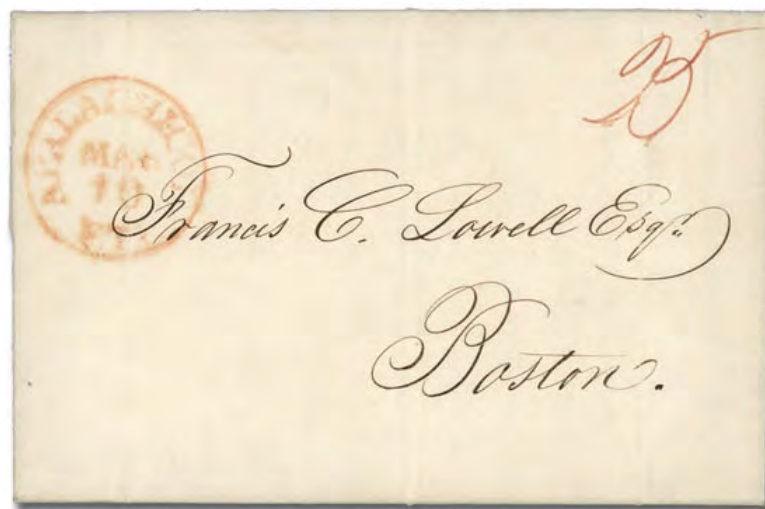 MAR
10
Francis C. Lowell Esqr.
Boston.